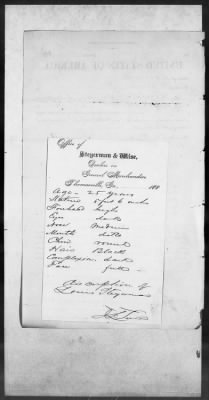 Office of
Steyerman & Wise,
Dealers in
General Merchandise
Thomasville, Ga. 188
Age - 25 years
Stature 5 feet 6 inches
Forehead high
Eyes dark
Nose Medium
Mouth ditto
Chin round
Hair Black
Complexion dark
Face full
Discription of
Louis Steyerman